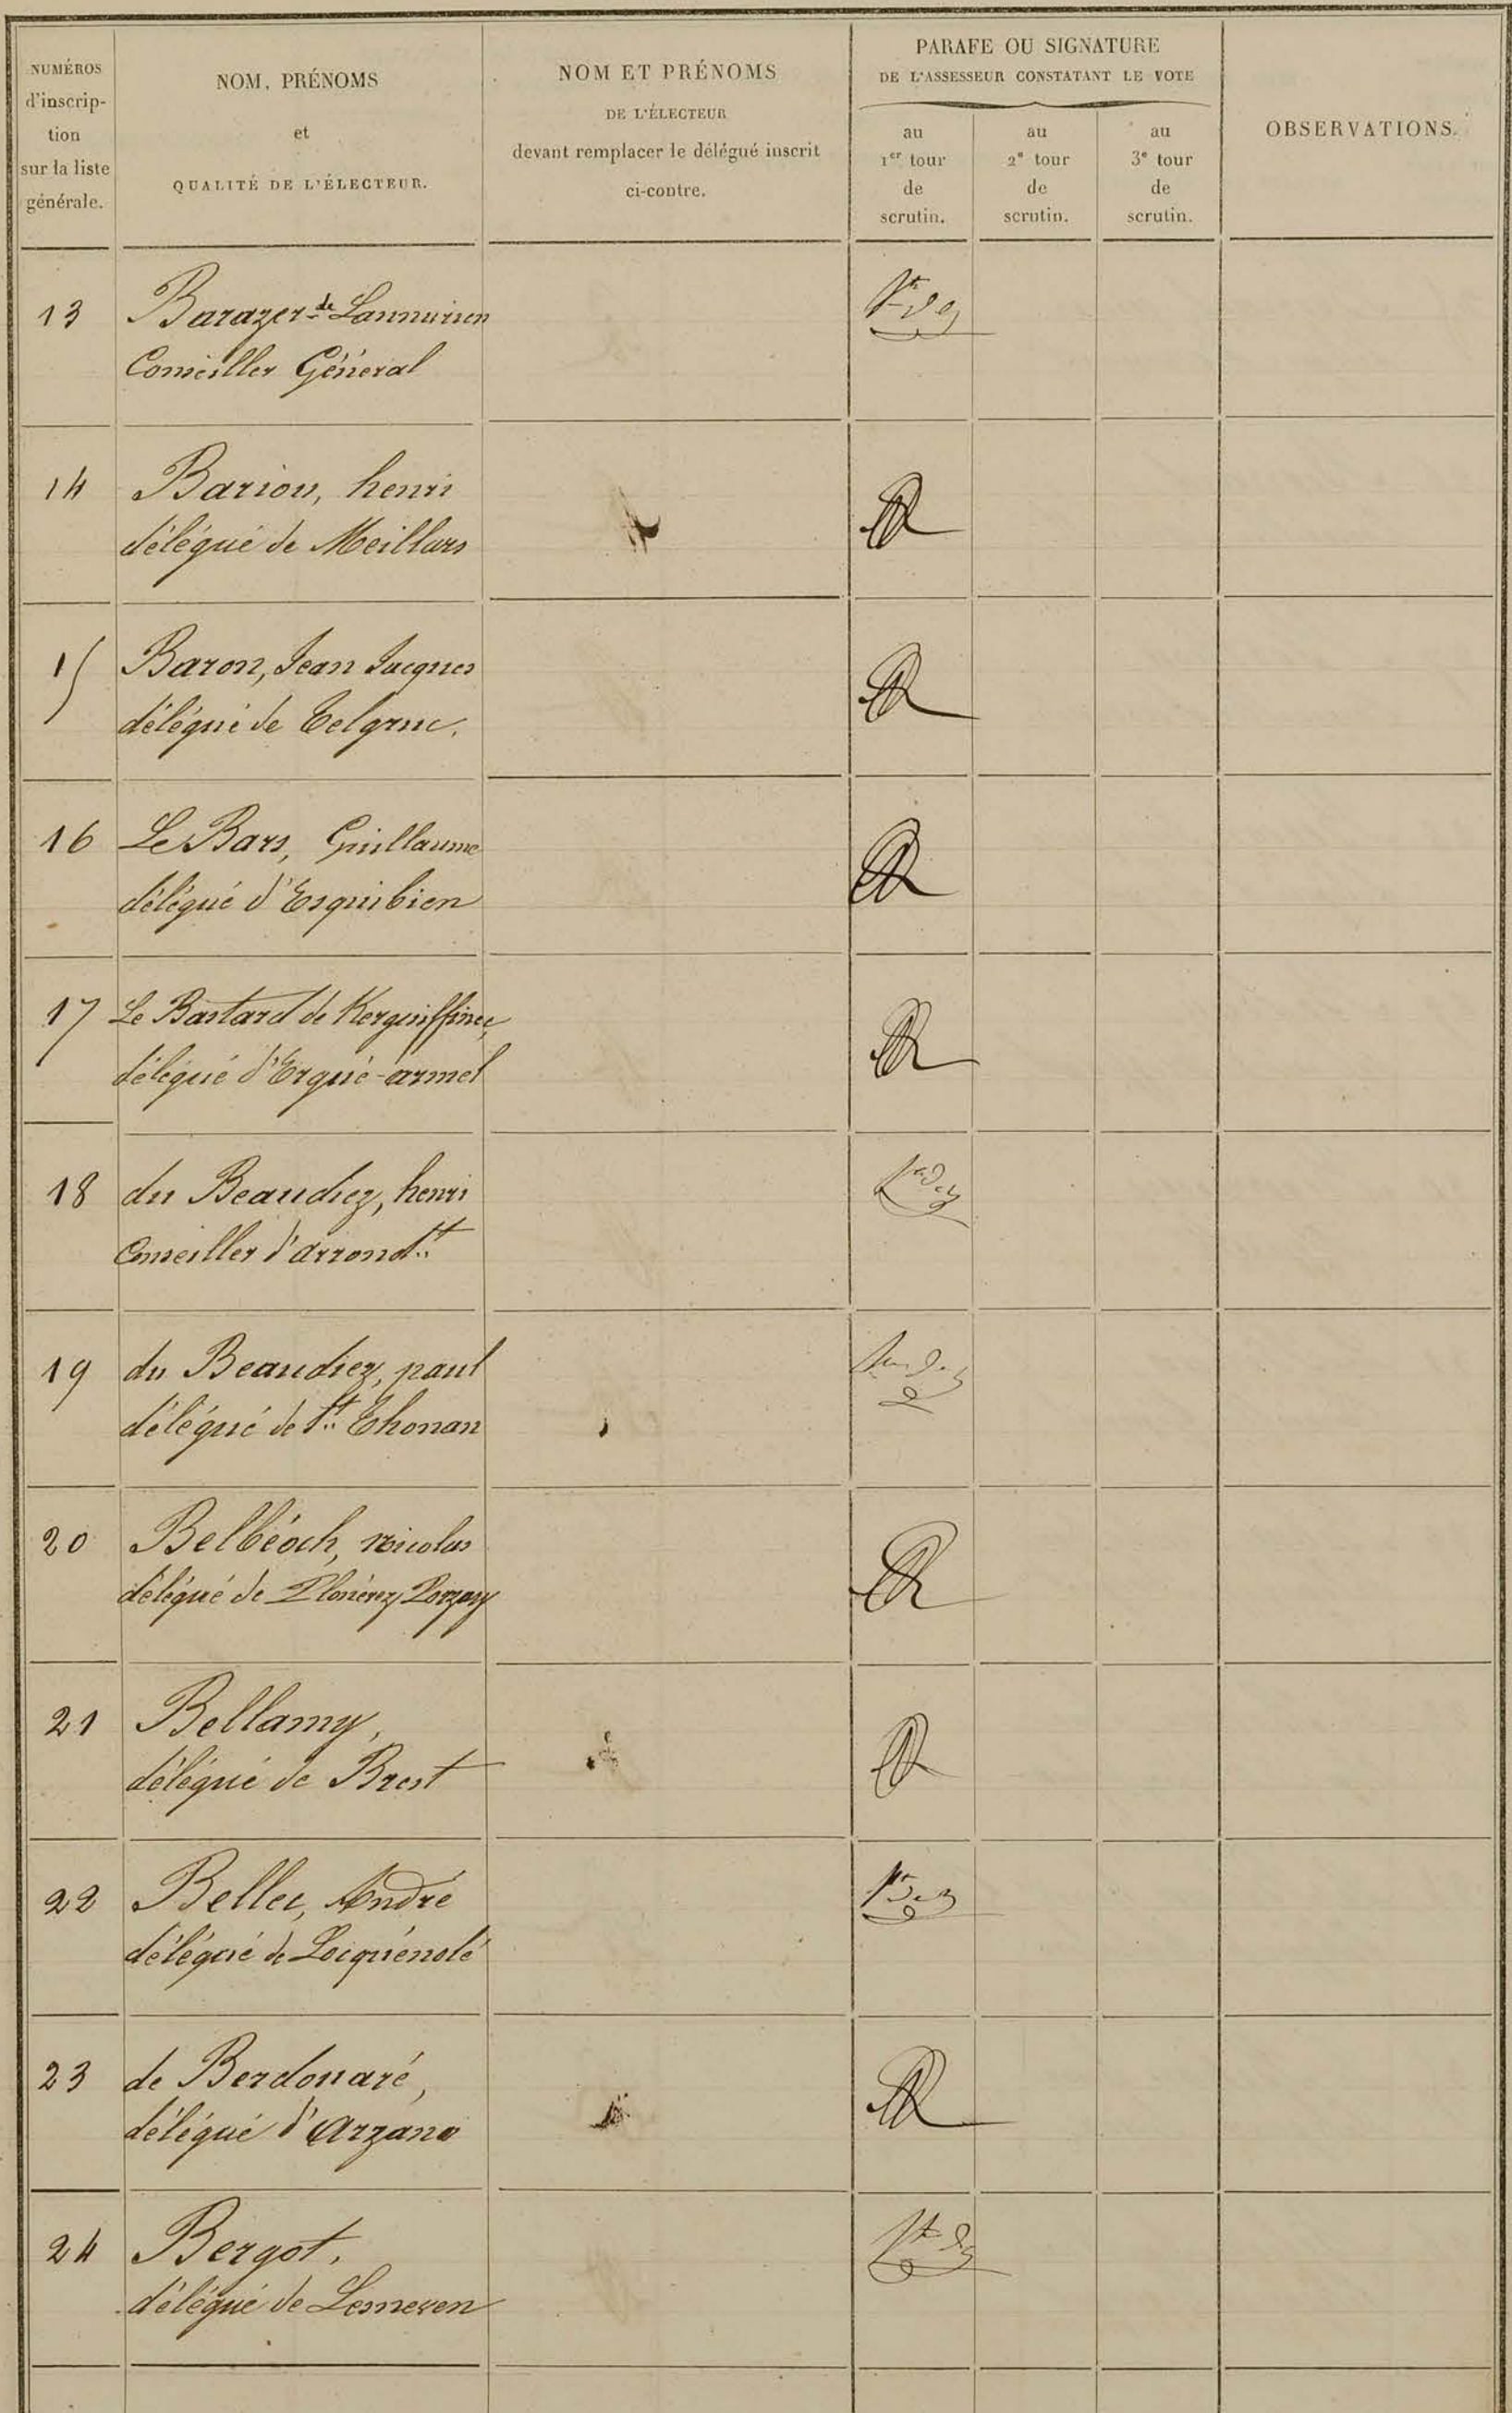 NUMÉROS
d'inscrip-
tion
sur la liste
générale.
NOM, PRÉNOMS
et
QUALITÉ DE L'ÉLECTEUR.
NOM ET PRÉNOMS
DE L'ÉLECTEUR
devant remplacer le délégué inscrit
ci-contre.
PARAFE OU SIGNATURE
DE L'ASSESSEUR CONSTATANT LE VOTE
au
1er tour
de
scrutin.
au
2e tour
de
scrutin.
au
3e tour
de
scrutin.
OBSERVATIONS.
13 Barazer de Lannurien
Conseiller Général
14 Bariou, henri
délégué de Meillars
15 Baron, Jean Jacques
délégué de Telgruc.
16 Le Bars, Guillaume
délégué d'Esquibien
17 Le Bastard de Kerguiffinec,
délégué d'Ergué-armel
18 du Beaudiez, henri
Conseiller d'arrondt
19 du Beaudiez, paul
délégué de St Thonan
20 Belbéoch, nicolas
délégué de Plonévez Porzay
21 Bellamy,
délégué de Brest
22 Bellec, André
délégué de Locquénolé
23 de Berdouaré,
délégué d'Arzano
24 Bergot,
délégué de Lesneven